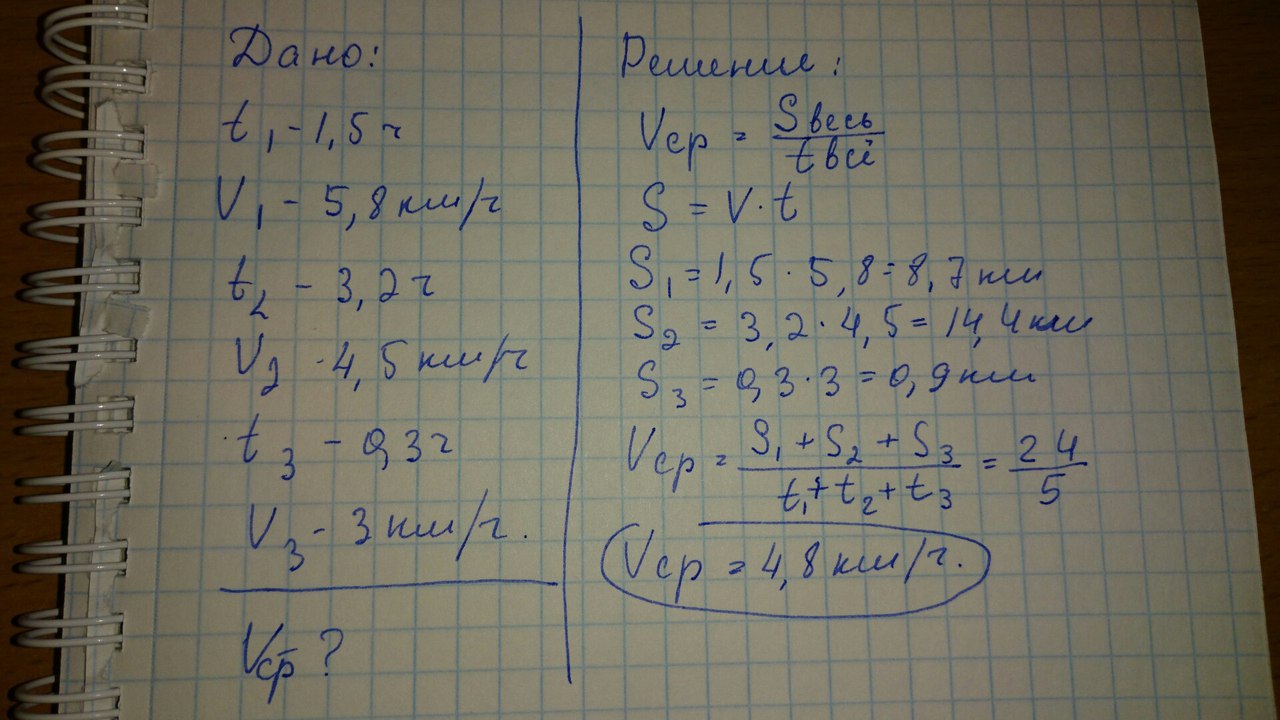 Дано:
t₁ - 1,5 ч
V₁ - 5,8 км/ч
t₂ - 3,2 ч
V₂ - 4,5 км/ч
t₃ - 0,3 ч
V₃ - 3 км/ч.
Vср - ?
Решение:
Vср = Sвесь / tвсё
S = V · t
S₁ = 1,5 · 5,8 = 8,7 км
S₂ = 3,2 · 4,5 = 14,4 км
S₃ = 0,3 · 3 = 0,9 км
Vср = S₁ + S₂ + S₃ / t₁ + t₂ + t₃ = 24 / 5
Vср = 4,8 км/ч.